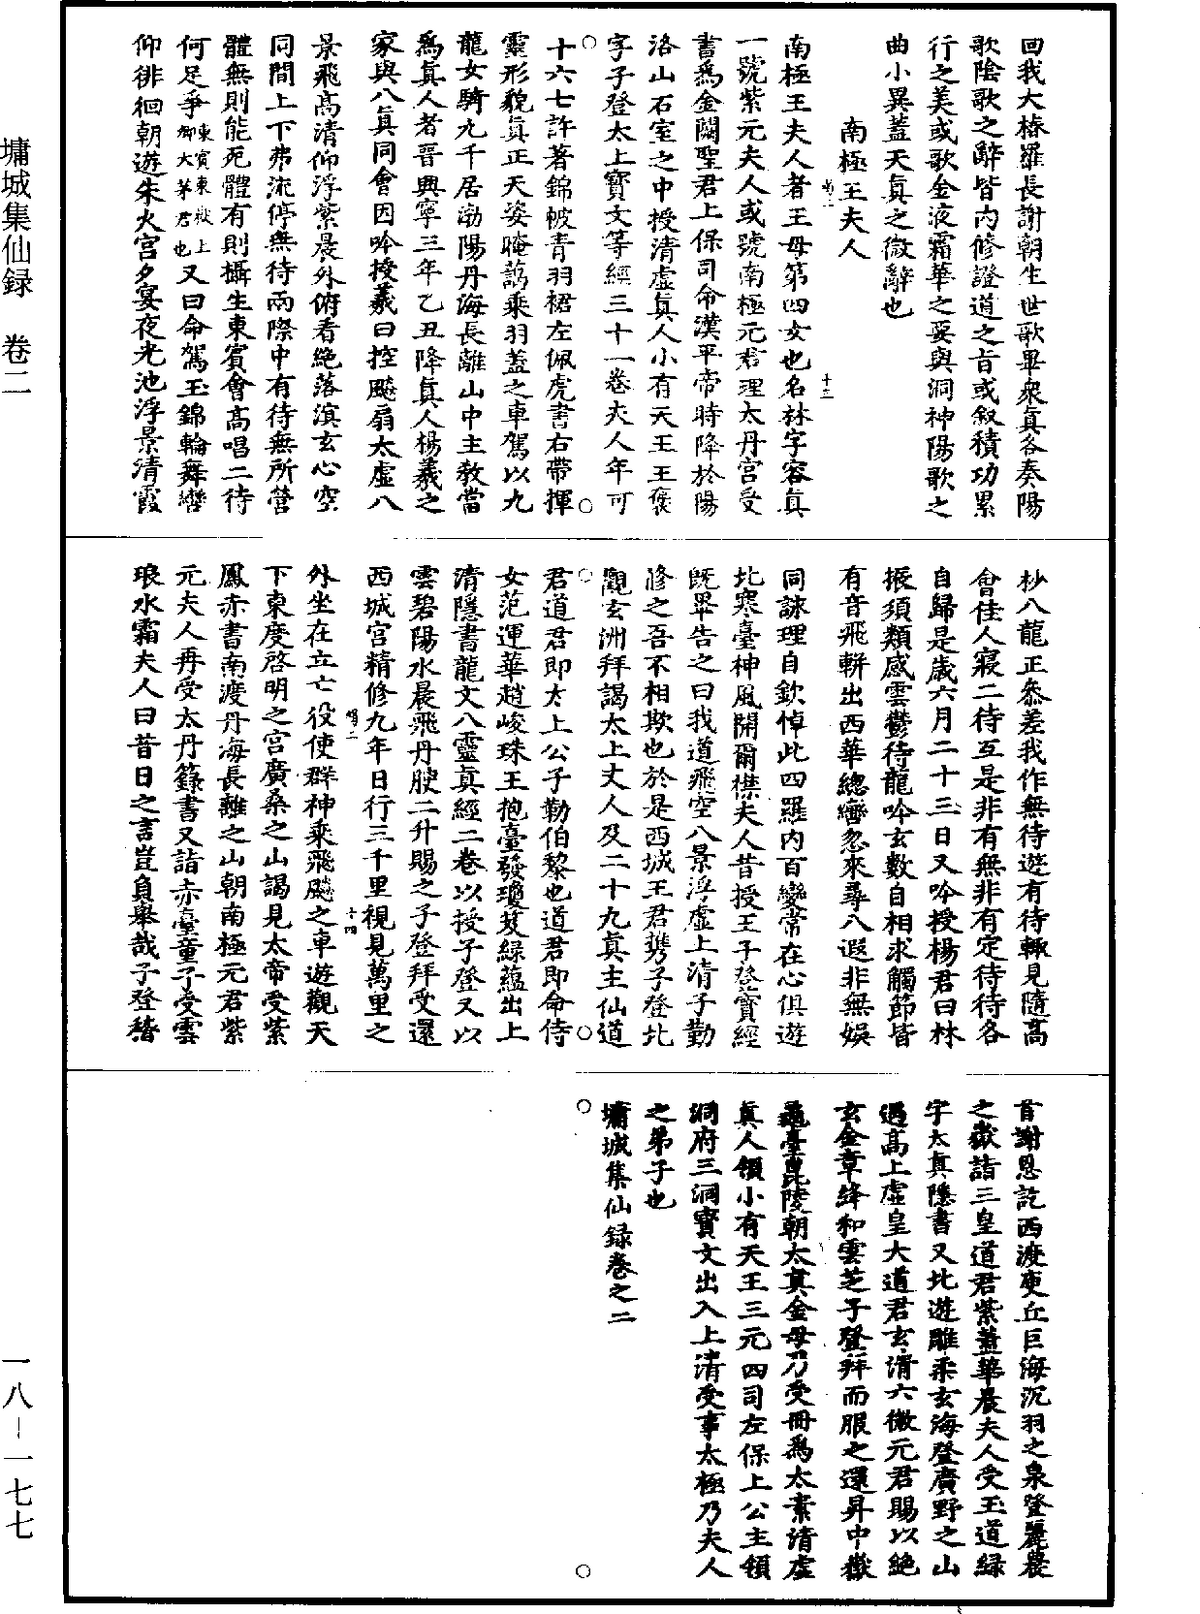 回我大椿羅長謝朝生世歌畢衆真各奏陽
歌陰歌之辭皆內修證道之旨或叙積功累
行之美或歌金液霜華之要與洞神陽歌之
曲小異蓋天真之微辭也
南極王夫人
南極王夫人者王母第四女也名林字容真
一號紫元夫人或號南極元君理太丹宮受
書爲金闕聖君上保司命漢平帝時降於陽
洛山石室之中授清虛真人小有天王王褒
字子登太上寶文等經三十一卷夫人年可
十六七許著錦帔青羽裙左佩虎書右帶揮
靈形貌真正天姿晻藹乘羽蓋之車駕以九
龍女騎九千居渤陽丹海長離山中主教當
爲真人者晉興寧三年乙丑降真人楊羲之
家與八真同會因吟授羲曰控飈扇太虛八
景飛高清仰浮紫晨外俯看絶落溟玄心空
同間上下弗流停無待兩際中有待無所營
體無則能死體有則攝生東賓會高唱二待
何足爭東賓東嶽上卿大茅君也又曰命駕玉錦輪舞轡
仰徘徊朝遊朱火宮夕宴夜光池浮景清霞
杪八龍正參差我作無待遊有待輒見隨高
會佳人寢二待互是非有無非有定待待各
自歸是歲六月二十三日又吟授楊君曰林
振須類感雲鬱待龍吟玄數自相求觸節皆
有音飛軿出西華總轡忽來尋八遐非無娛
同詠理自欽悼此四羅內百變常在心俱遊
北寒臺神風開爾襟夫人昔授王子登寶經
既畢告之曰我道飛空八景浮虛上清子勤
修之吾不相欺也於是西城王君携子登北
觀玄洲拜謁太上丈人及二十九真主仙道
君道君即太上公子勒伯黎也道君即命侍
女范運華趙峻珠王抱臺發瓊笈綠蘊出上
清隱書龍文八靈真經二卷以授子登又以
雲碧陽水晨飛丹腴二升賜之子登拜受還
西城宮精修九年日行三千里視見萬里之
外坐在立亡役使群神乘飛飈之車遊觀天
下東度啓明之宮廣桑之山謁見太帝受紫
鳳赤書南渡丹海長離之山朝南極元君紫
元夫人再受太丹籙書又詣赤臺童子受雲
琅水霜夫人曰昔日之言豈負舉哉子登稽
首謝恩訖西渡庾丘巨海沉羽之泉登麗農
之嶽詣三皇道君紫蓋華晨夫人受玉道綠
字太真隱書又北遊雕柔玄海登廣野之山
遇高上虛皇大道君玄清六微元君賜以絶
玄金章絳和雲芝子登拜而服之還昇中嶽
龜臺毘陵朝太真金母乃受冊爲太素清虛
真人領小有天王三元四司左保上公主領
洞府三洞寶文出入上清受事太極乃夫人
之弟子也
墉城集仙録卷之二
墉城集仙録 卷二
一八-一七七